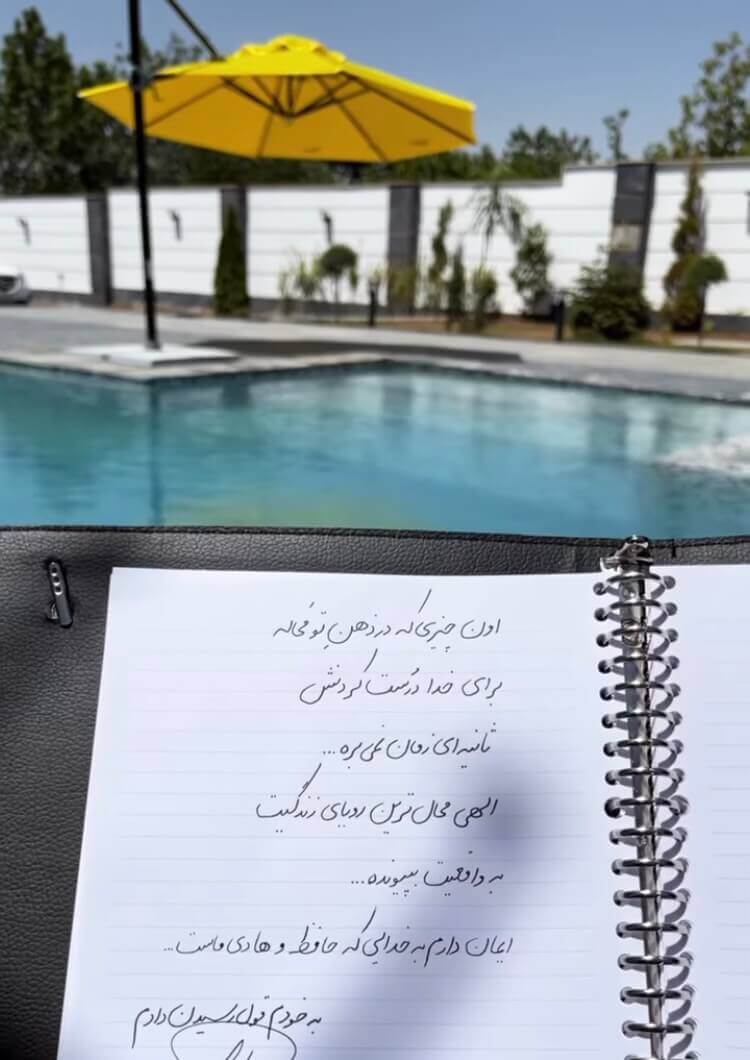 اون چیزی که در ذهنِ تو مُحاله
برای خدا دُرست کردنش
ثانیه‌ای زمان نمی‌بره...
الهی محال‌ترین رویای زندگیت
به واقعیت بپیونده...
ایمان دارم به خدایی که حافظ و هادی ماست...
به خودم قول رسیدن دادم